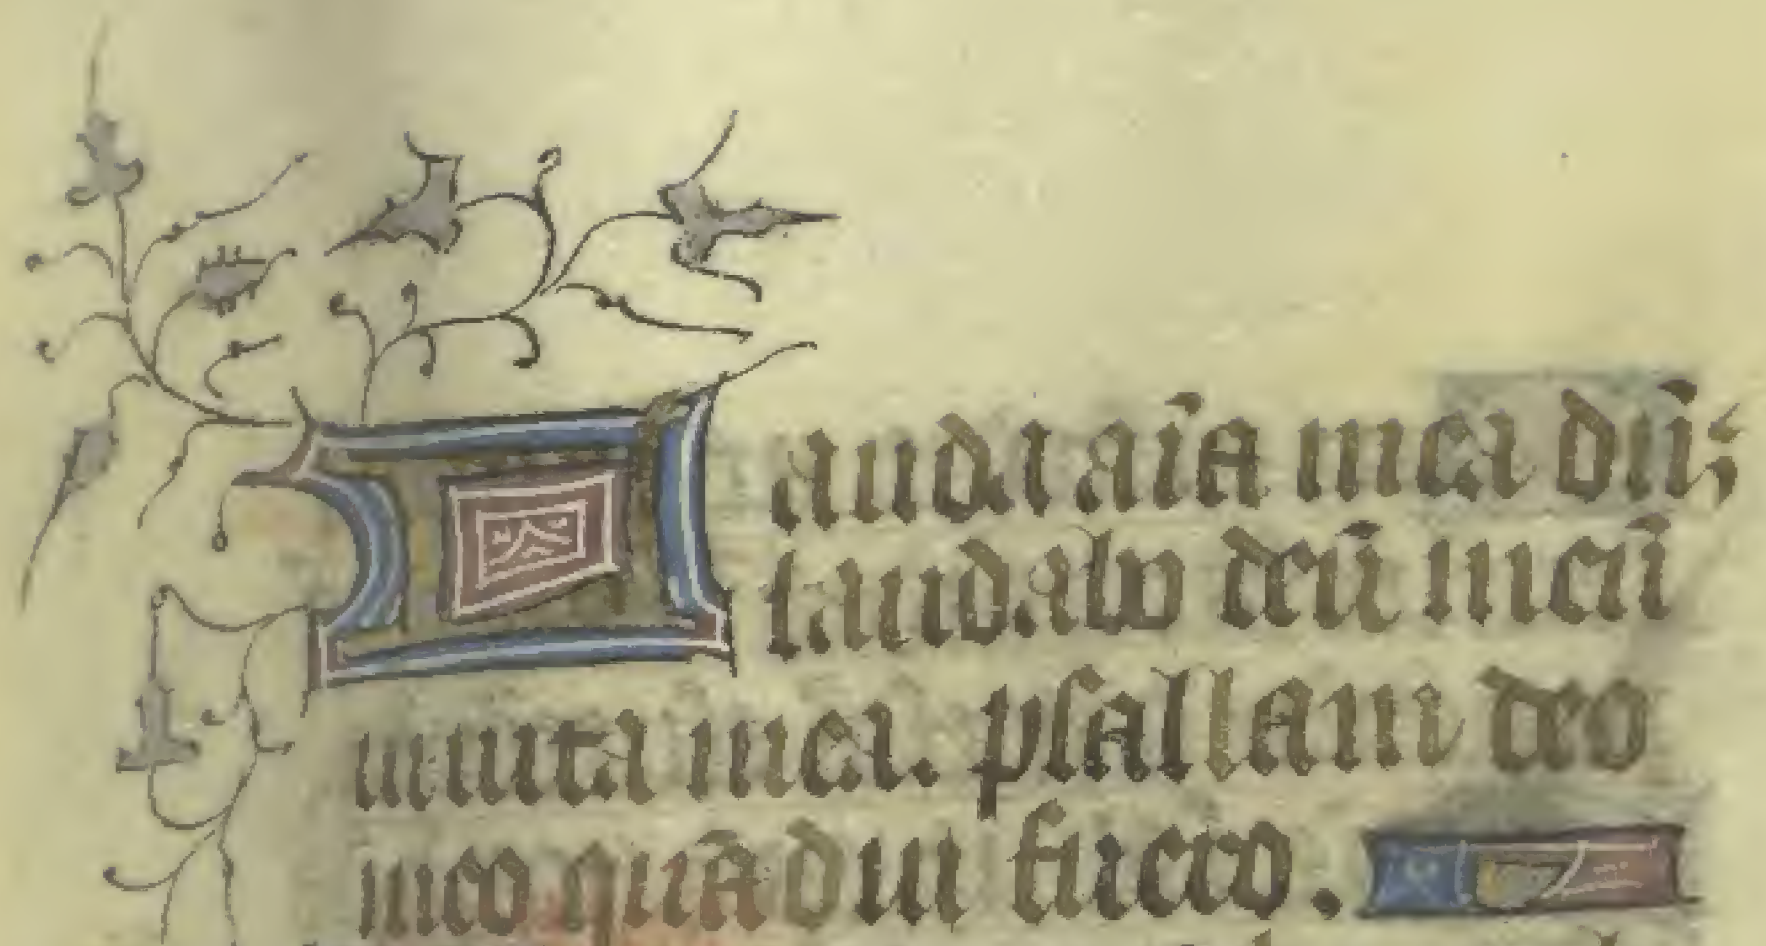 Lauda aīa mea dn̄;
laudabo deū meū
in uita mea. psallam deo
meo quādiu fuero.